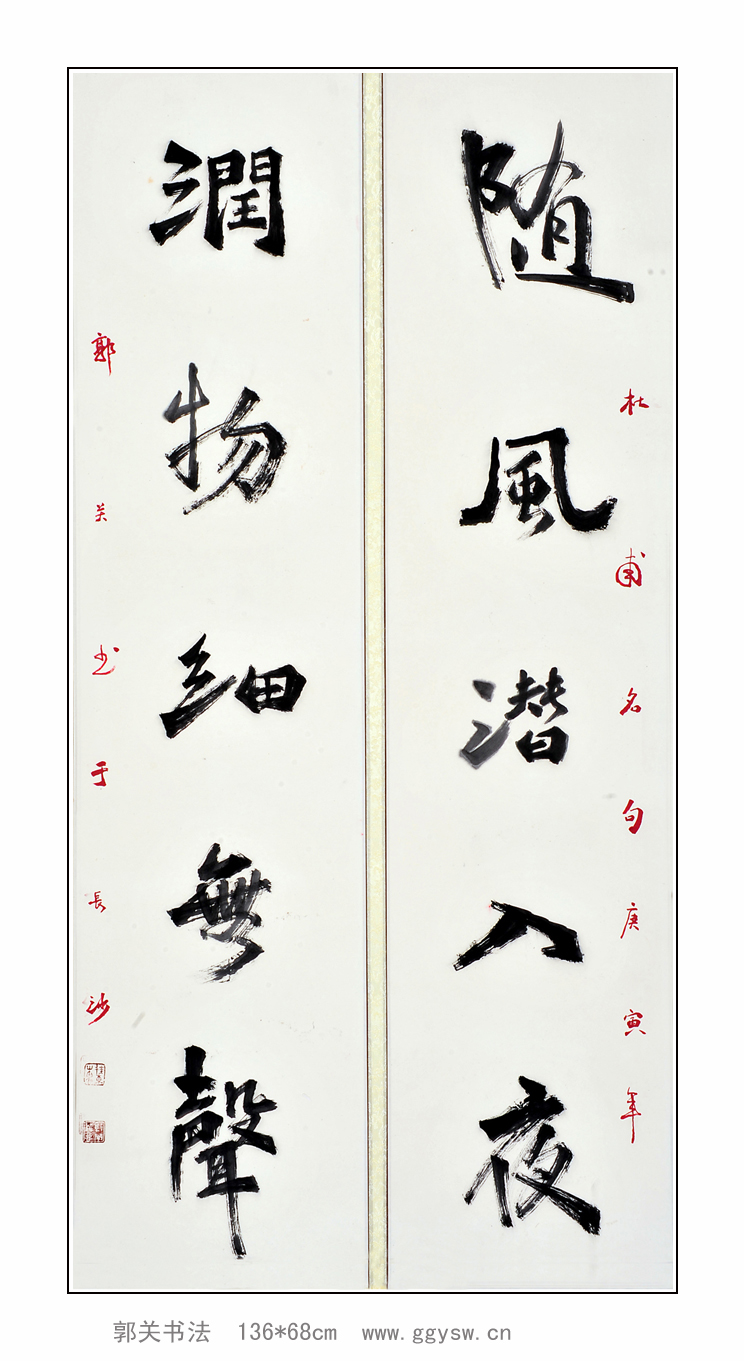 随風潜入夜
杜甫名句庚寅年
潤物細無聲
郭关书于長沙
郭关书法 136*68cm www.ggysw.cn